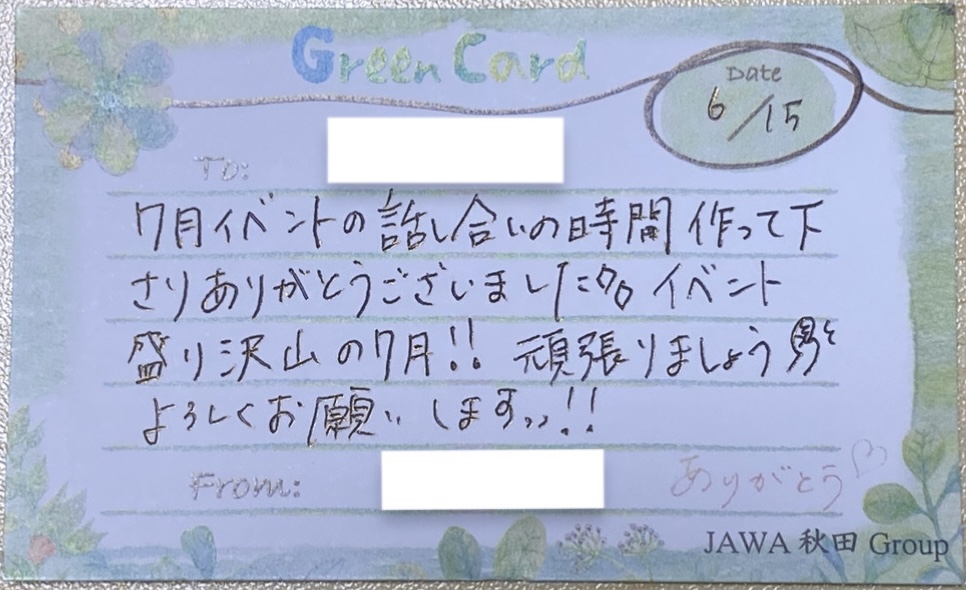 Green Card
Date
6/15
To:
7月イベントの話し合いの時間作って下
さりありがとうございました イベント
盛り沢山の7月!! 頑張りましょう
よろしくお願いします,,!!
From:
ありがとう
JAWA 秋田 Group